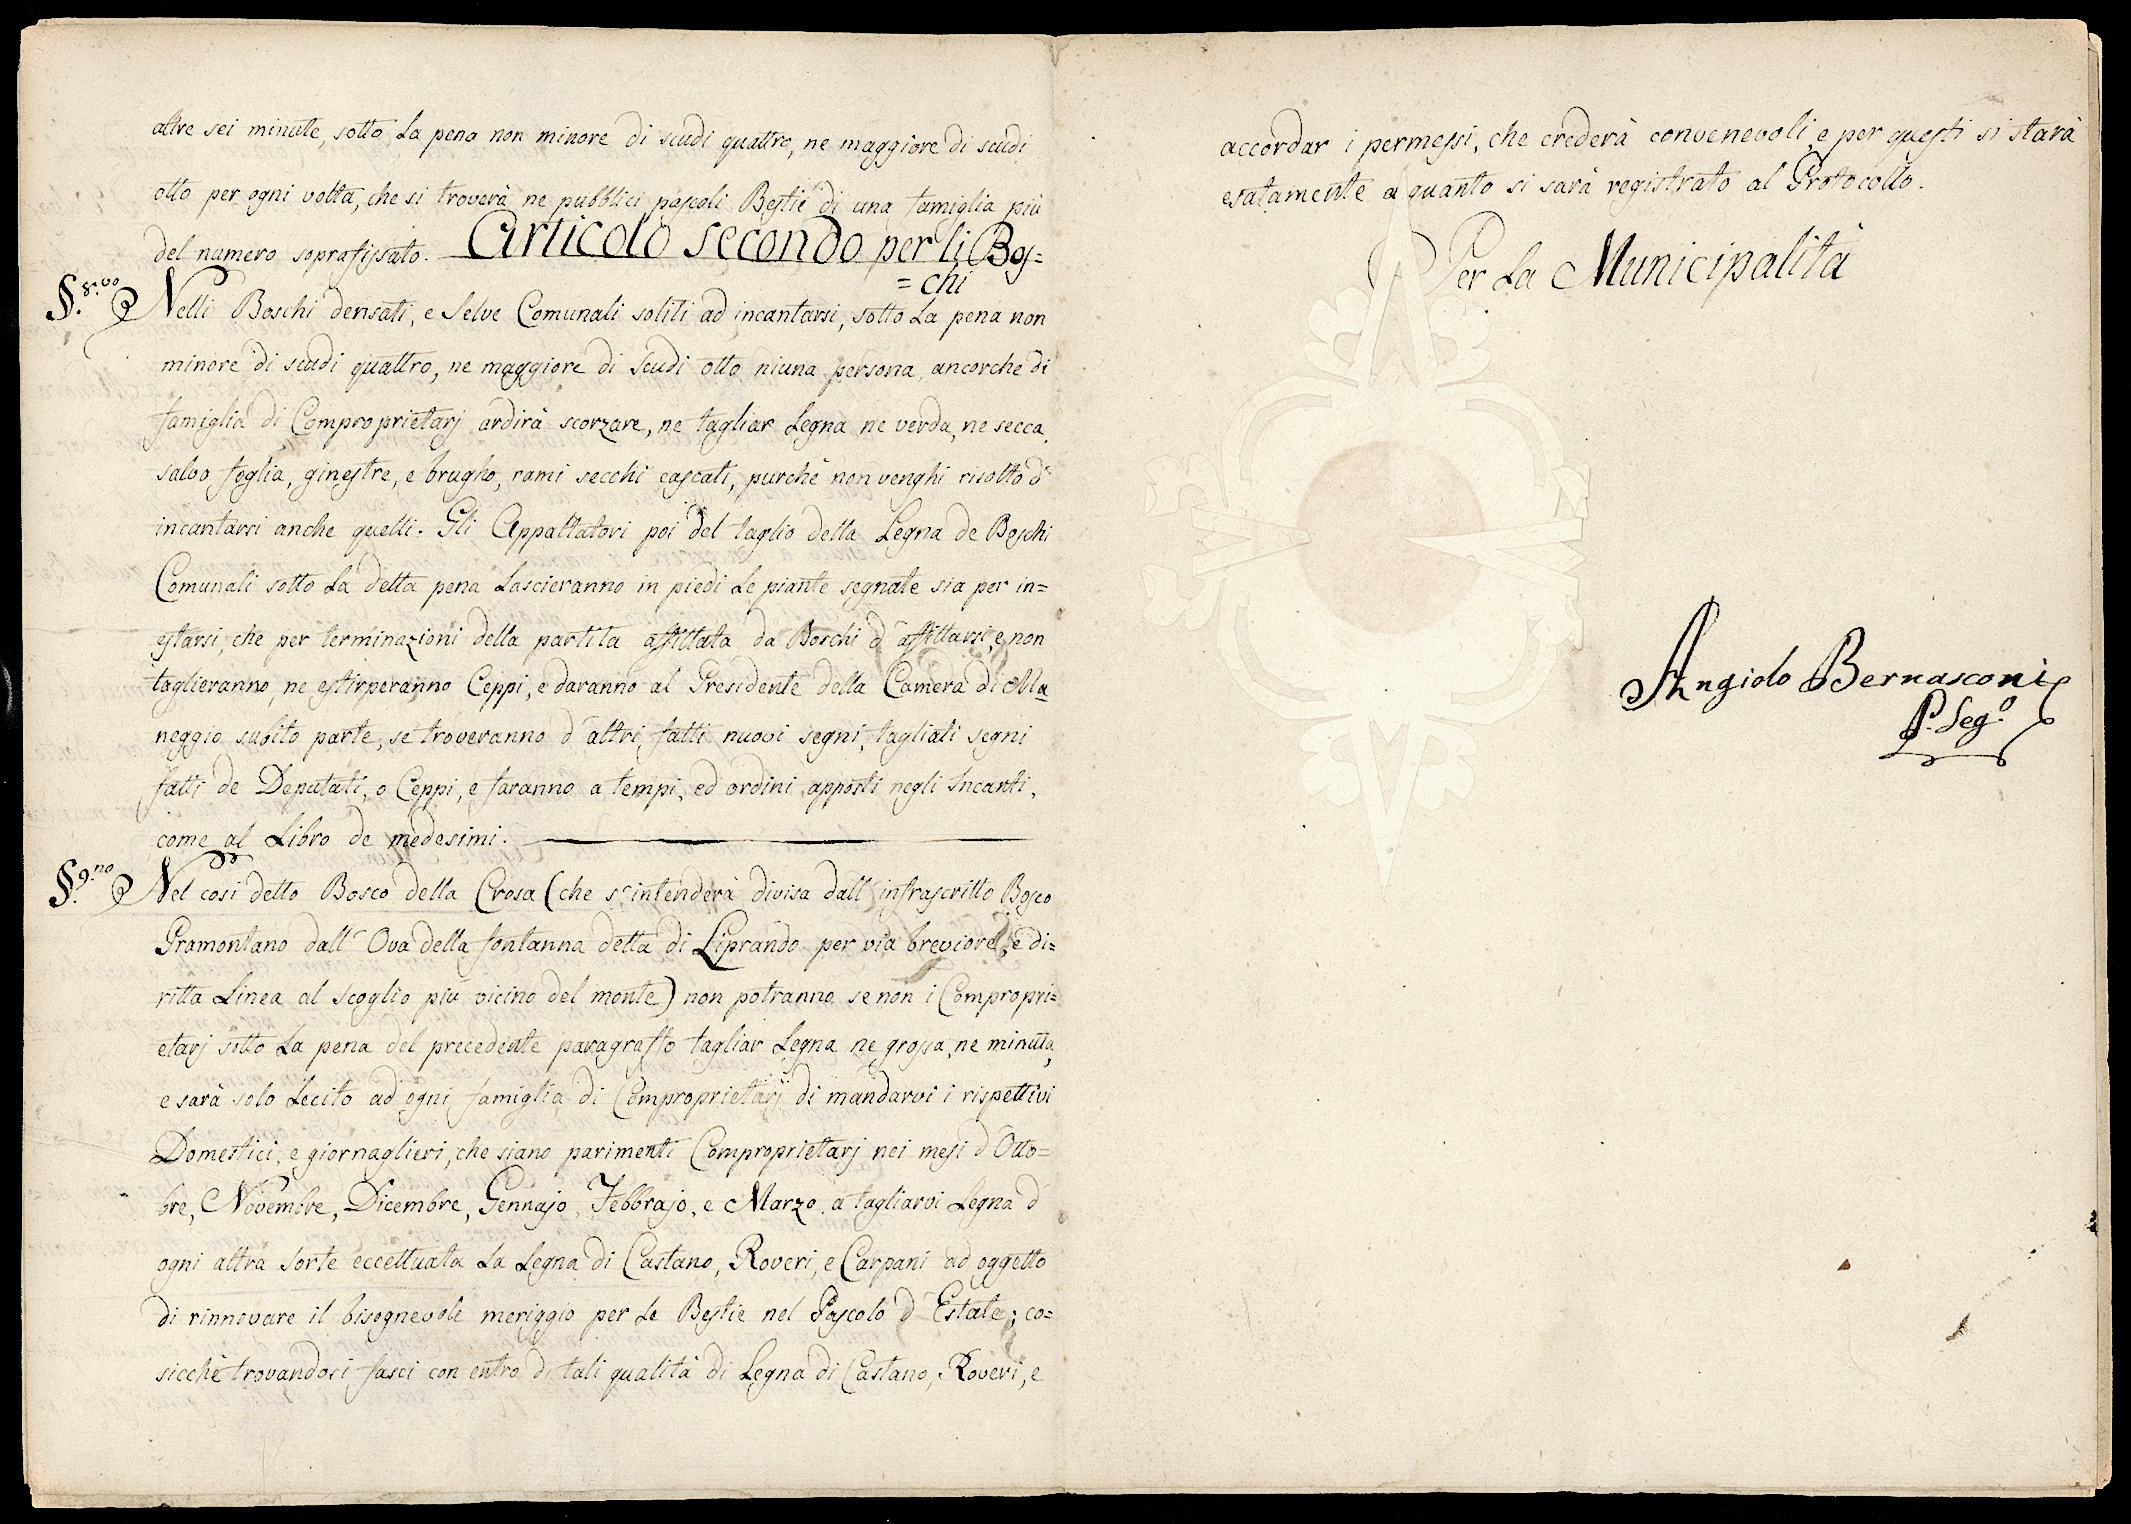 altre sei minute, sotto La pena non minore di scudi quattro, ne maggiore di scudi
otto per ogni volta, che si troverà ne pubblici pascoli Bestie di una famiglia più
del numero soprafissato. Articolo secondo per li Bos=
=chi
§. 8.vo Nelli Boschi densati, e Selve Comunali soliti ad incantarsi, sotto La pena non
minore di scudi quattro, ne maggiore di Scudi otto niuna persona ancorche di
famiglia di Comproprietarj ardirà scorzare, ne tagliar Legna ne verda, ne secca,
salvo foglia, ginestre, e brugho, rami secchi cascati, purchè non venghi risolto d'
incantarsi anche quelli. Gli Appaltatori poi del taglio della Legna de Boschi
Comunali sotto La detta pena Lascieranno in piedi Le piante segnate sia per in=
estarsi, che per terminazioni della partita affittata da Boschi d'affittarsi, e non
taglieranno, ne estirperanno Ceppi, e daranno al Presidente della Camera di Ma=
neggio subito parte, se troveranno d'altri fatti nuovi segni, tagliati segni
fatti de Deputati, o Ceppi, e faranno a tempi, ed ordini apposti negli Incanti,
come al Libro de medesimi.
§. 9.no Nel cosi detto Bosco della Crosa (che s'intenderà divisa dall'infrascritto Bosco
Pramontano dall'Ova della fontanna detta di Liprando per via breviore, e di=
ritta Linea al scoglio più vicino del monte) non potranno se non i Compropri=
etarj sotto La pena del precedente paragraffo tagliar Legna ne grossa, ne minuta,
e sarà solo Lecito ad ogni famiglia di Comproprietarj di mandarvi i rispettivi
Domestici, e giornaglieri, che siano parimenti Comproprietarj nei mesi d'Otto=
bre, Novembre, Dicembre, Gennajo, Febbrajo, e Marzo a tagliarvi Legna d'
ogni altra Sorte eccettuata La Legna di Castano, Roveri, e Carpani ad oggetto
di rinnovare il bisognevole meriggio per Le Bestie nel Pascolo d'Estate; co=
sicchè trovandosi fasci con entro di tali qualità di Legna di Castano, Roveri, e
accordar i permessi, che crederà convenevoli, e per questi si starà
esatamente a quanto si sarà registrato al Protocollo.
Per La Municipalità
Angiolo Bernasconi
P. Seg.o